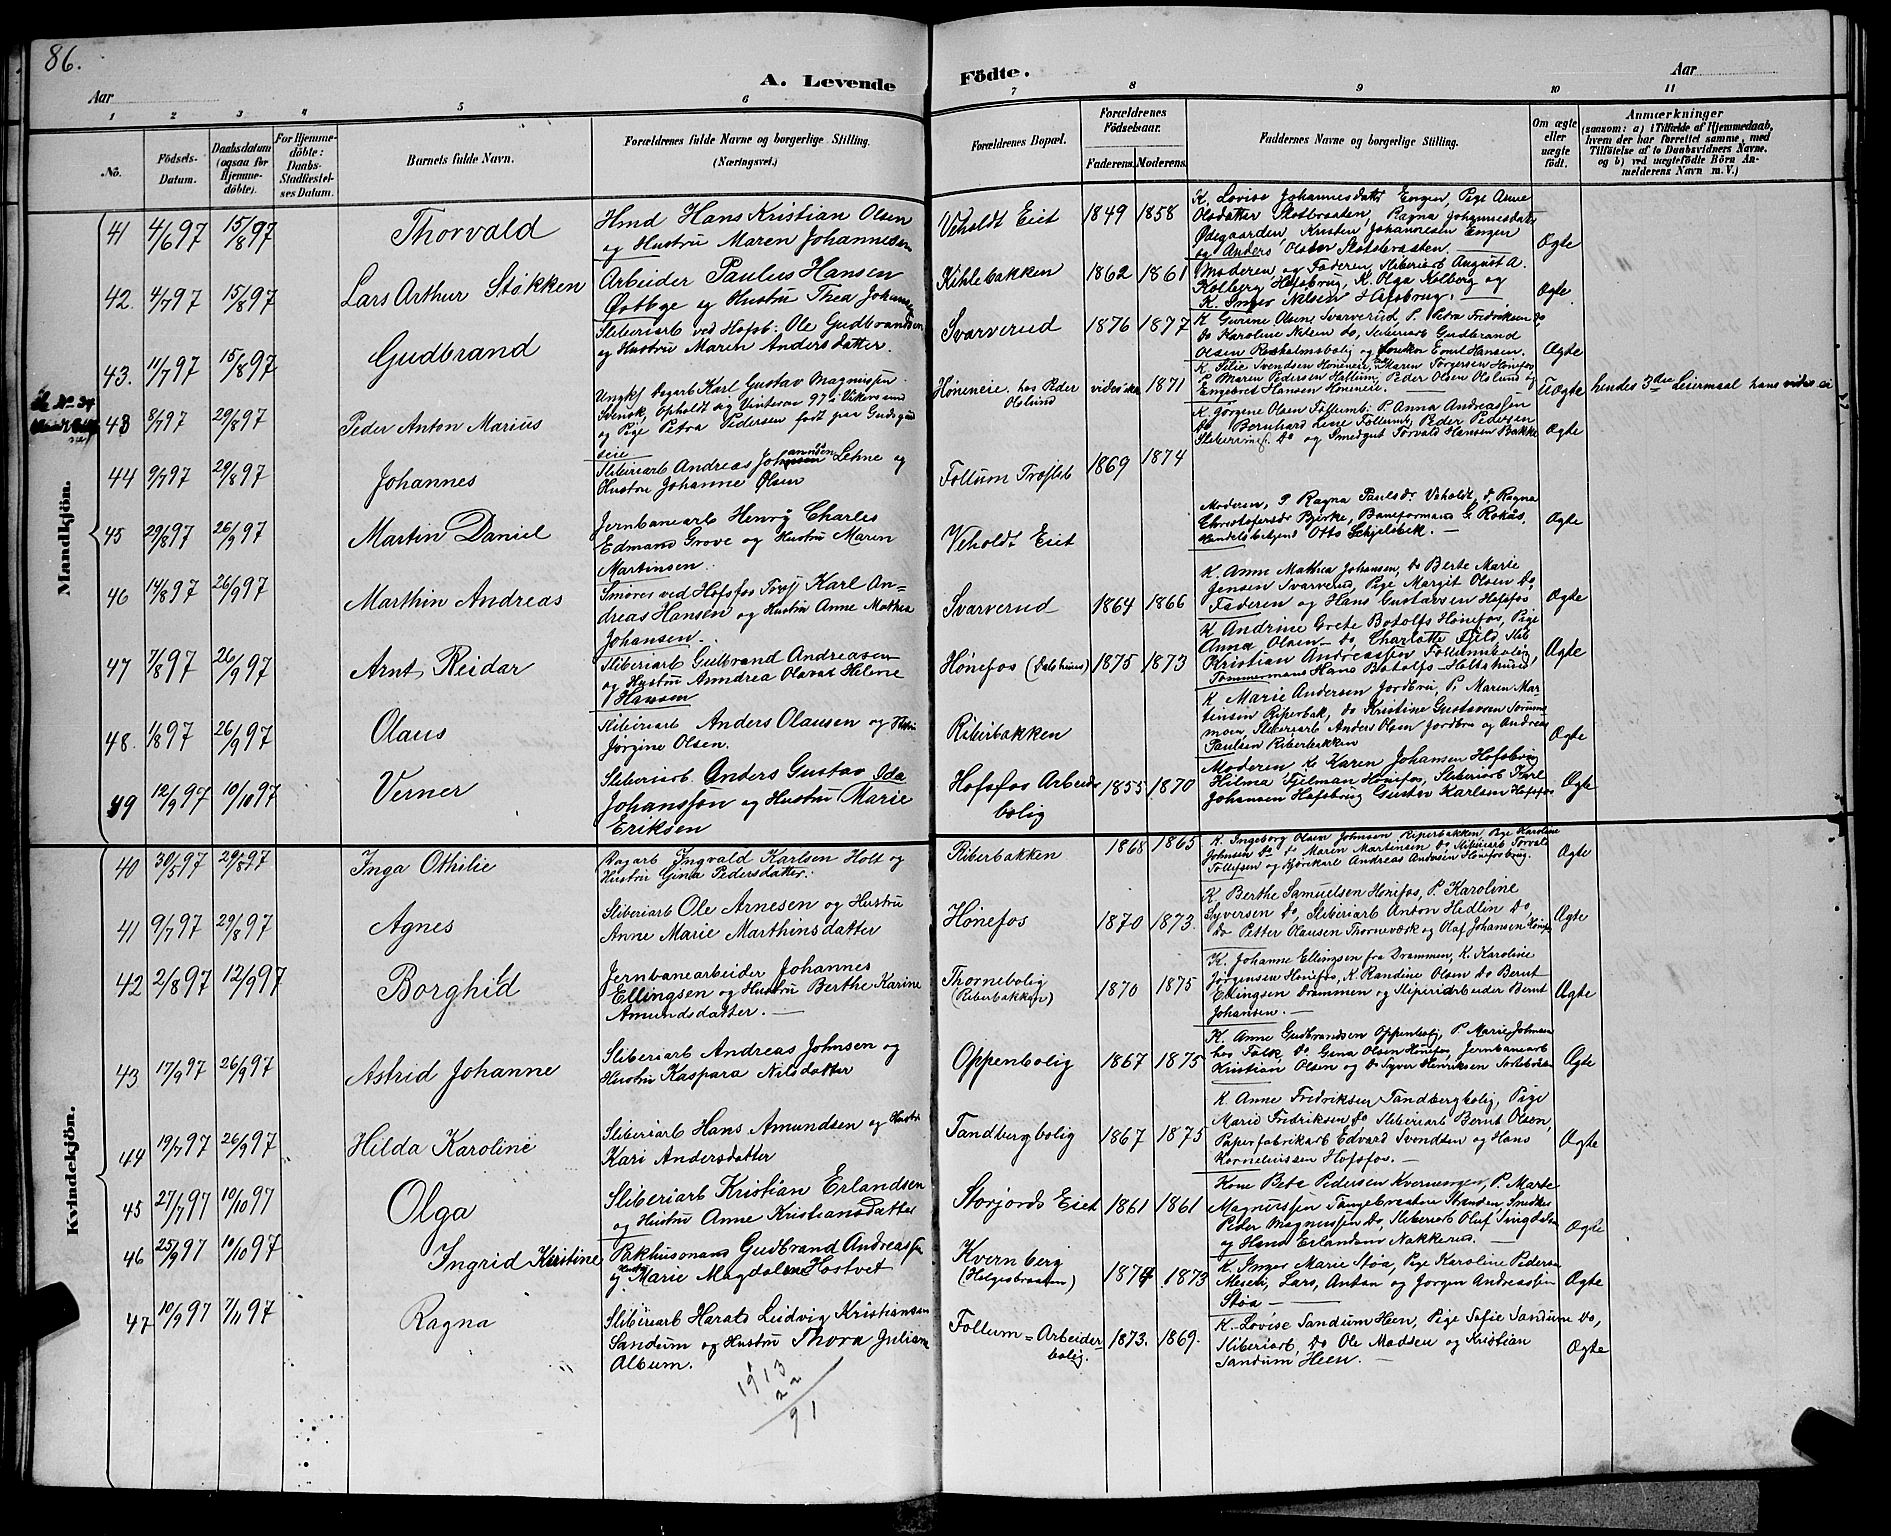 86.
A. Levende Födte.
Aar
Aar
1 2 3 4 5 6 7 8 9 10 11
No.
Födsels-Datum.
Daabsdatum (ogsaa for Hjemmedöbte).
For Hjemmedöbte: Daabs-Stadfæstelses Datum.
Barnets fulde Navn.
Forældrenes fulde Navne og borgerlige Stilling.
(Næringsvei.)
Forældrenes Bopæl.
Forældrenes Fødselsaar.
Faderens. Moderens.
Faddernes Navne og borgerlige Stilling.
Om ægte eller uægte født.
Anmærkninger
(saasom: a) i Tilfælde af Hjemmedaab,
hvem der har forrettet samme, med
Tilföielse af to Daabsvidners Navne,
og b) ved uægtefödte Börn Anmelderens Navn m. V.)
Mandkjön.
41 4/6 97 15/8 97 Thorvald
Hmd Hans Kristian Olsen
og Hustru Maren Johannesen
Veholdt Eiet 1849 1858
K. Lovise Johannesdatter Engen, Pige Anne
Olsdatter Slotbraaten, Ragna Johannesdatter
Ødegaarden, Kristen Johannesen Engen
og Anders Olsen Slotsbraaten
Ægte
42. 4/7 97 15/8 97 Lars Arthur Støkken
Arbeider Paulus Hansen
Østbye og Hustru Thea Johansen
Kihlebakken 1862 1861
Moderen og Faderen, Sliberiarb August A.
Kolberg Hofsbrug, K. Olga Kolberg og
K. Inger Nilsen Hofsbrug.
Ægte.
43. 11/7 97 15/8 97 Gudbrand
Sliberiarb ved Hofsb. Ole Gudbrandsen
og Hustru Maren Andersdatter.
Svarverud 1876 1877
K Gurine Olsen Svarverud, P. Petra Fredriksen do,
do Karoline Nilsen do, Sliberiarb Gudbrand
Olsen Rosholmsbolig og Snekker Emil Hansen.
Ægte
43 8/7 97 29/8 97 Peder Anton Marius
Ungkf Dagarb Karl Gustav Magnussen
Svensk Opholdt sig Vinteren 97 i Vikersund
og Pige Petra Pedersen født paa
eie
Høneneie hos Peder
Olslund
vides ikke 1871
K. Silie Svendsen Høneneie, Maren Torgersen Hønefos,
P. Maren Pedersen Hallum, Peder Olsen Olslund og
Engebret Hansen Høneneie.
Uægte
hendes 3die Leiermaal hans vides ei
44 9/7 97 29/8 97 Johannes
Sliberiarb Andreas Johannesen Lehne og
Hustru Johanne Olsen
Follum Træslib 1869 1874
K. Jørgine Olsen Follumb. P. Anna Andreassen
do Bernhard Lene Follum, Peder Pedersen
do og Smedgut Torvald Hansen Bakke
Ægte
45 29/8 97 26/9 97 Martin Daniel
Jernbanearb Henry Charles
Edmand Grove og Hustru Maren
Martinsen.
Veholdt Eiet
Moderen, P Ragna Paulsdr Veholdt, do Ragna
Christofersdr Bjerke, Baneformand G. Rokås,
Handelsbetjent Otto Schjelsbek.
Ægte
46 14/8 97 26/9 97 Marthin Andreas
Smører ved Hofsfos Træsf Karl Andreas
Hansen og Hustru Anne Mathea
Johansen.
Svarverud 1864 1866
K. Anne Mathea Johansen, do Berte Marie
Jensen Svarverud, Pige Margit Olsen do,
Faderen og Hans Gustavsen Hofsfos
Ægte
47 7/8 97 26/9 97 Arnt Reidar
Sliberiarb Gulbrand Andreasen
og Hustru Anndrea Olava Helene
Hansen
Hønefos (Dalshuus) 1875 1873
K Andrine Grete Botolfs Hønefos, Pige
Anna Olsen do, Charlotte Fjeld, Slib
Kristian Andreassen Follumsbolig,
Tømmermand Hans Botolfs
Ægte
48. 1/8 97 26/9 97 Olaus
Sliberiarb Anders Olausen og Hustru
Jørgine Olsen.
Riberbakken
K Marie Andersen Jordbru, P. Maren Martinsen
Riperbak, do Kristine Gustavsen
moen, Sliberiarb Anders Olsen Jordbru og Andreas
Paulsen Riberbakken
Ægte
49 12/9 97 10/10 97 Verner
Sliberiarb. Anders Gustav
Johansson og Hustru Ida Marie
Eriksen
Hofsfos Arbeiderbolig 1855 1870
Moderen K Karen Johansen Hofsbrug
Hilma Tjelman Hønefos, Sliberiarb Karl
Johansen Hofsbrug Gustav Karlsen Hofsfos
Ægte
Kvindekjön.
40 30/5 97 29/8 97 Inga Othilie
Dagarb Ingvald Karlsen Holt og
Hustru Gina Pedersdatter.
Riberbakken 1868 1865
K. Ingeborg Olsen Johnsen Riperbakken, Pige Karoline
Johnsen do do Maren Martinsen do Sliberiarb Torvald
Tollefsen og Kjørekarl Andreas Andersen Hønefosbrug.
Ægte
41 9/7 97 29/8 97 Agnes
Sliberiarb Ole Arnesen og Hustru
Anne Marie Marthinsdatter
Hønefos 1870 1873.
K. Berthe Samuelsen Hønefos, P. Karoline
Syversen do, Sliberiarb Anton Hedlin do,
do Petter Olausen Thorneværk og Olaf Johansen Hønefos
Ægte
42 2/8 97 12/9 97 Borghild
Jernbanearbeider Johannes
Ellingsen og Hustru Berthe Karine
Amundsdatter.
Thornebolig
(Riberbakken) 1870 1875
K. Johanne Ellingsen fra Drammen, K. Karoline
Jørgensen Hønefos, K. Randine Olsen do Bernt
Ellingsen Drammen og Sliperiarbeider Bernt
Johansen.
Ægte
43 17/9 97 26/9 97 Astrid Johanne
Sliberiarb Andreas Johnsen og
Hustru Kaspara Nilsdatter
Oppenbolig 1867 1875
K. Anne Gudbrandsen Oppenbolig, P. Marie Johnsen
hos Falk, do Gina Olsen Hønefos, Jernbanearb
Kristian Olsen og do Syver Henriksen
Ægte
44 19/7 97 26/9 97 Hilda Karoline
Sliberiarb Hans Amundsen og Hustru
Kari Andersdatter
Tandbergbolig 1867 1875
K. Anne Fredriksen Tandbergbolig, Pige
Marie Fredriksen do Sliberiarb Bernt Olsen,
Papirfabrikarb Edvard Svendsen og Hans
Korneliussen Hofsfos.
Ægte
45 27/7 97 10/10 97 Olga
Sliberiarb Kristian Erlandsen
og Hustru Anne Kristiansdatter
Storjords Eiet 1861 1861
Kone Bete Pedersen Kvernengen, P. Marte
Magnussen Tangebraaten Stranden, Snedker
Peder Magnussen do, Sliberiarb Oluf Tingelstad
og Hans Erlandsen Nakkerud.
Ægte
46 25/9 97 10/10 97 Ingrid Kristine
Pakhusmand Gudbrand Andreassen
og Hustru Marie Magdalene Hostvet
Kvernberg
(Helgesbraaten) 1874 1873
K. Inger Marie Støa, Pige Karoline Pedersen
Mesen, Lars, Anton og Jørgen Andreassen
Støa
Ægte
47 10/9 97 7/11 97 Ragna
Sliberiarb Harald Ludvig Kristiansen
Sandum og Hustru Thora Juliane
Album.
Follum-Arbeiderbolig. 1873. 1869.
K. Lovise Sandum Heen, Pige Sofie Sandum do,
Sliberiarb, do Ole Madsen og Kristian
Sandum Heen.
Ægte
1913
22
91